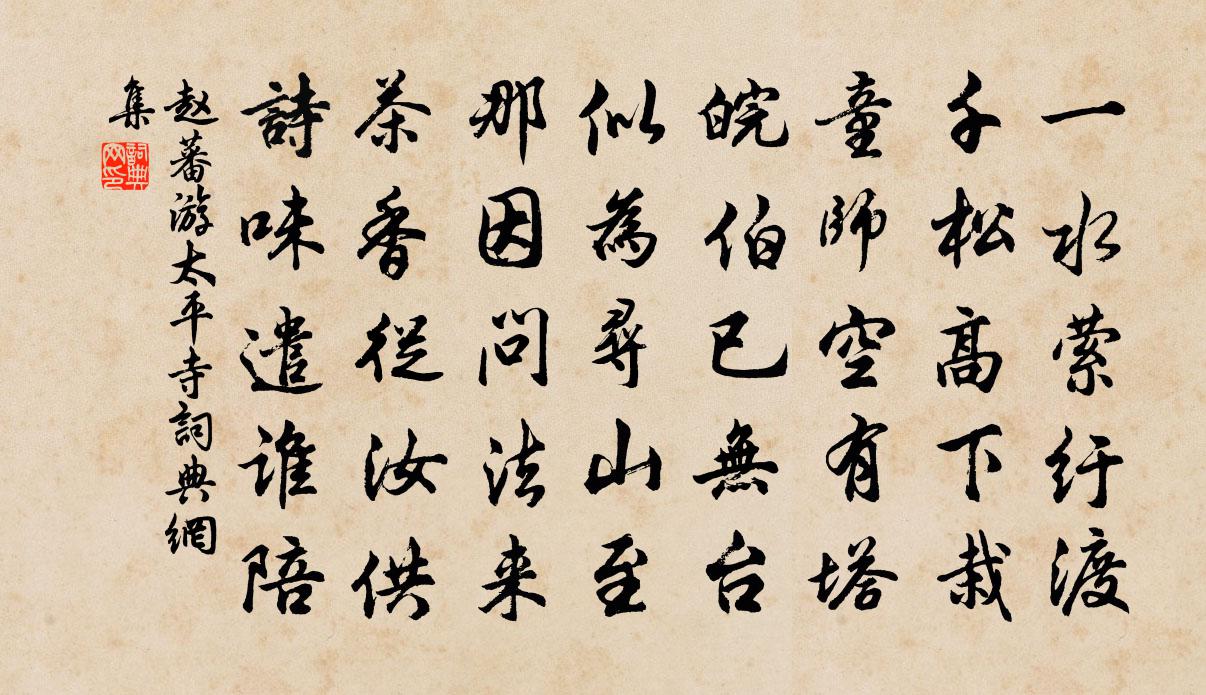 一水萦纡渡
千松高下栽
童師空有塔
皖伯已無台
似為尋山至
那因問法来
茶香從汝供
詩味遣谁陪
赵蕃游太平寺詞典網
集
詞典
网印